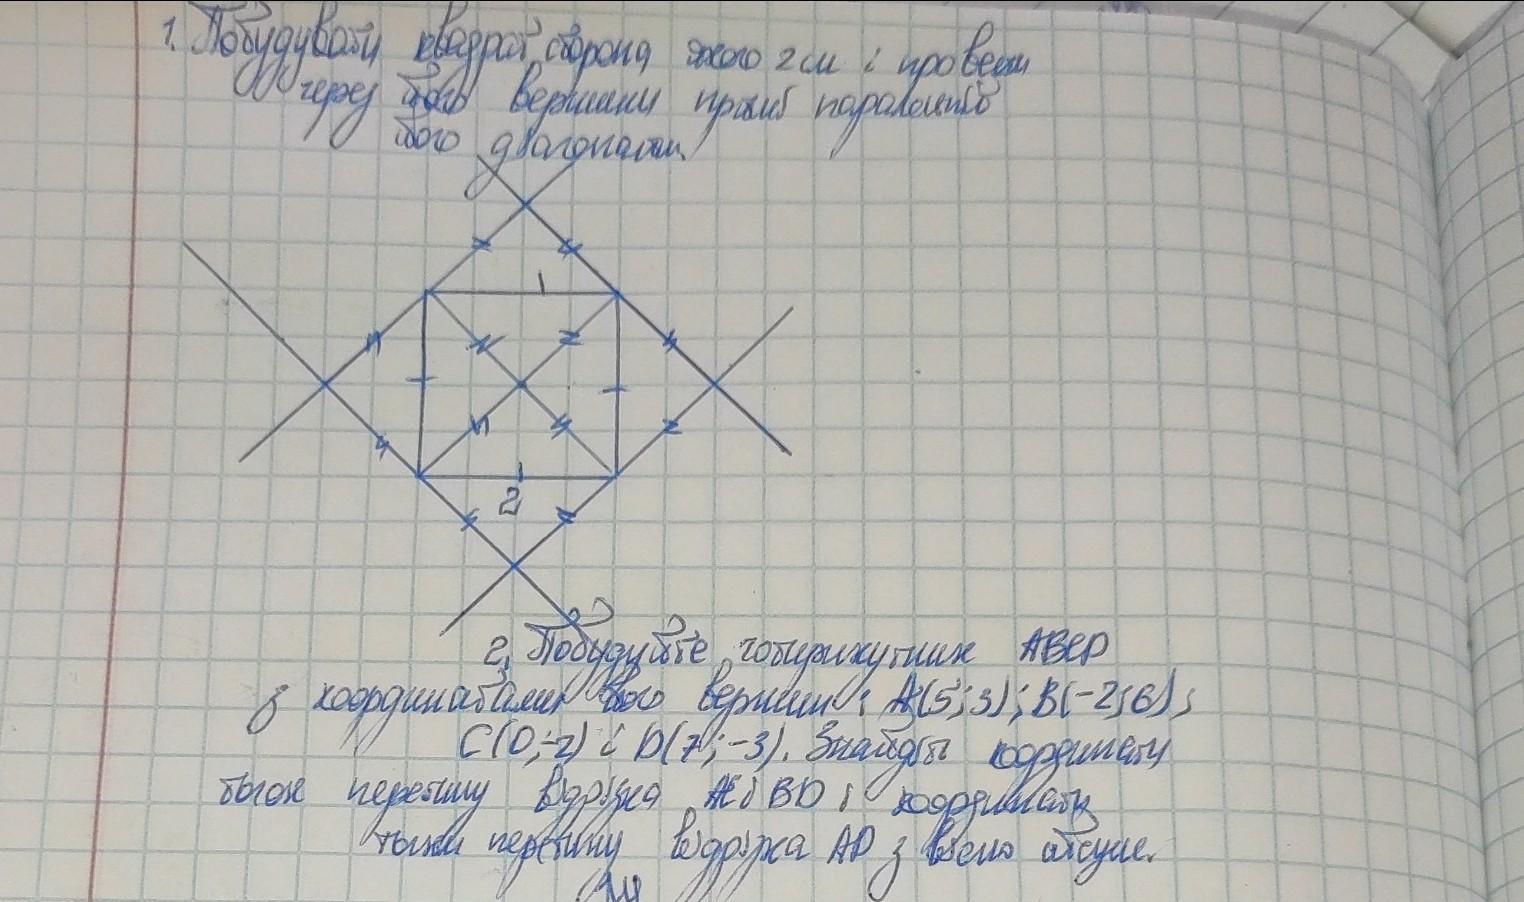 1. Побудувати квадрат, сторона якого 2 см і провести
через його вершини прямі паралельно
його діагоналям.
1
2
2. Побудуйте чотирикутник ABCD
з координатами його вершин: A(5;3); B(-2;6);
C(0;-2) і D(7;-3). Знайдіть координати
точок перетину відрізка AC і BD і координати
точки перетину відрізка AD з віссю абсцис.